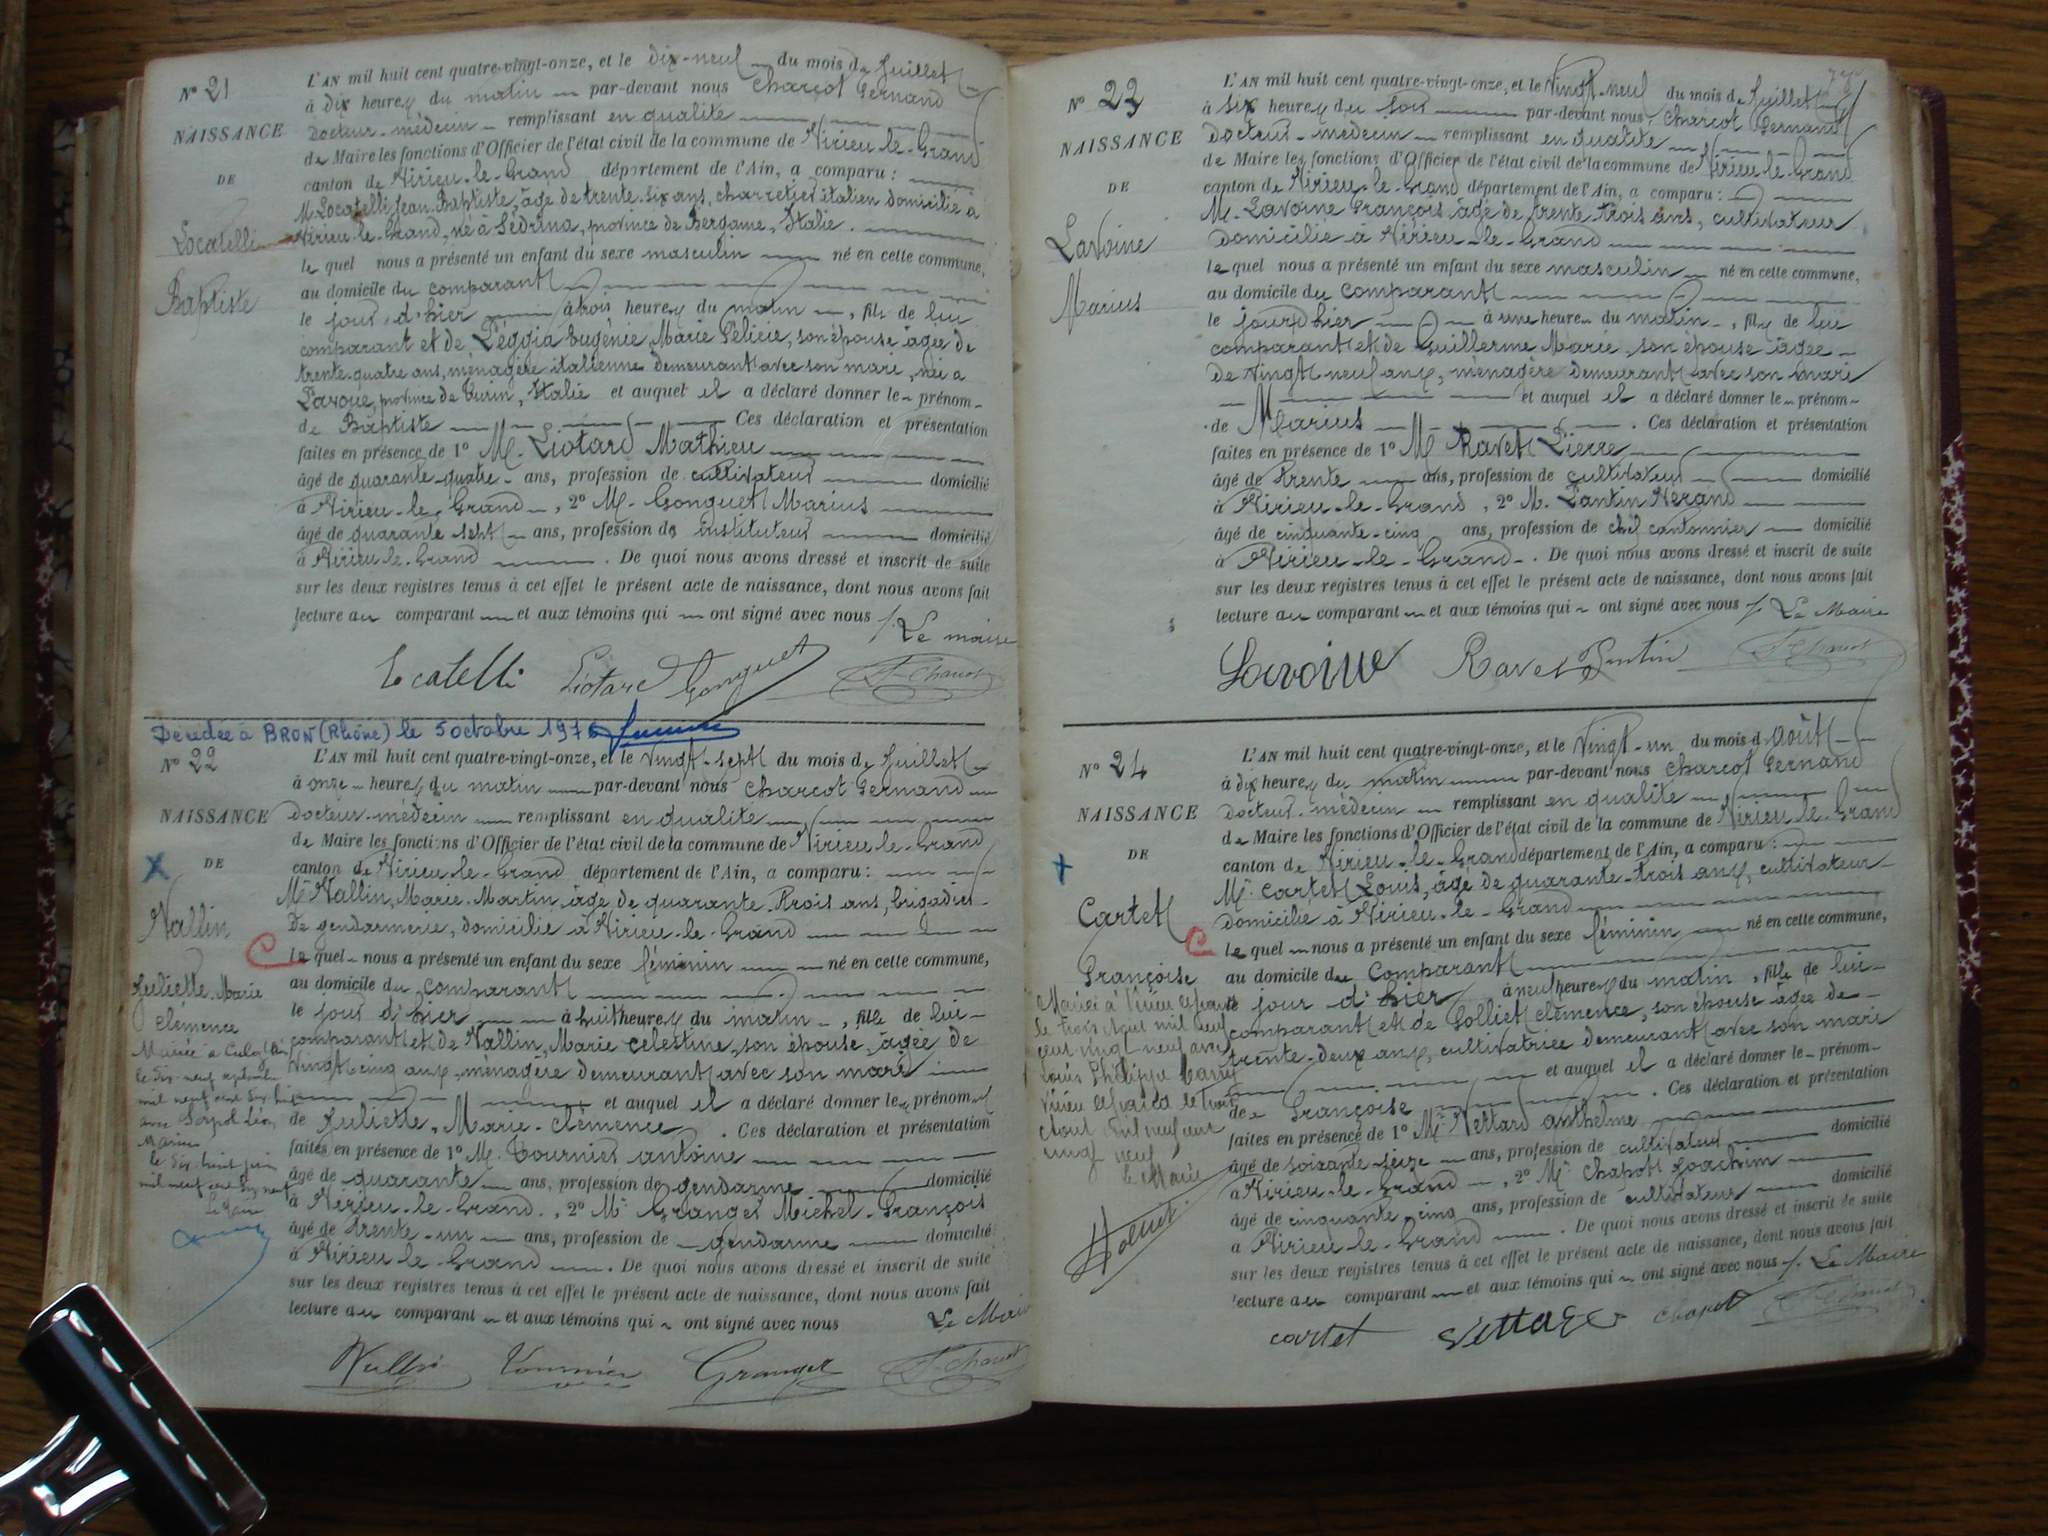 N° 21
NAISSANCE
DE
Locatelli
Baptiste
L'AN mil huit cent quatre-vingt-onze, et le dix-neuf du mois de Juillet
à dix heures du matin par-devant nous Charcot Fernand
Docteur-médecin remplissant en qualité
de Maire les fonctions d'Officier de l'état civil de la commune de Virieu-le-Grand
canton de Virieu-le-Grand département de l'Ain, a comparu :
M. Locatelli Jean-Baptiste, âgé de trente-six ans, charretier italien domicilié à
Virieu-le-Grand, né à Sédrina, province de Bergame, Italie.
lequel nous a présenté un enfant du sexe masculin né en cette commune,
au domicile du comparant
le jour d'hier à trois heures du matin, fils de lui
comparant et de Peggia Eugénie Marie Félicie, son épouse âgée de
trente-quatre ans, ménagère italienne demeurant avec son mari, née à
province de Turin, Italie et auquel il a déclaré donner le prénom
de Baptiste Ces déclaration et présentation
faites en présence de 1° M. Liotard Mathieu
âgé de quarante-quatre ans, profession de cultivateur domicilié
à Virieu-le-Grand, 2° M. Gonguet Marius
âgé de quarante-sept ans, profession de instituteur domicilié
à Virieu-le-Grand. De quoi nous avons dressé et inscrit de suite
sur les deux registres tenus à cet effet le présent acte de naissance, dont nous avons fait
lecture au comparant et aux témoins qui ont signé avec nous /. Le maire
Locatelli Liotard Gonguet F. Charcot
Décédée à BRON (Rhône) le 5 octobre 197
N° 22
NAISSANCE
DE
Nallin
Juliette Marie
clémence
Mariée à Culoz (Ain)
le dix-neuf
mil neuf cent
avec Serpol Léon
Marius
le dix huit juin
mil neuf cent
Le Maire
L'AN mil huit cent quatre-vingt-onze, et le vingt-sept du mois de Juillet
à onze heures du matin par-devant nous Charcot Fernand
Docteur-médecin remplissant en qualité
de Maire les fonctions d'Officier de l'état civil de la commune de Virieu-le-Grand
canton de Virieu-le-Grand département de l'Ain, a comparu :
Mr Nallin, Marie-Martin âgé de quarante-trois ans, brigadier
de gendarmerie, domicilié à Virieu-le-Grand
lequel nous a présenté un enfant du sexe féminin né en cette commune,
au domicile du comparant
le jour d'hier à huit heures du matin, fille de lui
comparant et de Nallin, Marie celestine, son épouse, âgée de
vingt cinq ans, ménagère demeurant avec son mari
et auquel il a déclaré donner les prénoms
de Juliette, Marie-clémence. Ces déclaration et présentation
faites en présence de 1° M. Tournier antoine
âgé de quarante ans, profession de gendarme domicilié
à Virieu-le-Grand, 2° Mr Granger Michel-François
âgé de trente-un ans, profession de gendarme domicilié
à Virieu-le-Grand. De quoi nous avons dressé et inscrit de suite
sur les deux registres tenus à cet effet le présent acte de naissance, dont nous avons fait
lecture au comparant et aux témoins qui ont signé avec nous Le Maire
Nallin Tournier Granger F. Charcot
N° 23
NAISSANCE
DE
Lavoine
Marius
L'AN mil huit cent quatre-vingt-onze, et le vingt-neuf du mois de Juillet
à six heures du soir par-devant nous Charcot Fernand
Docteur-médecin remplissant en qualité
de Maire les fonctions d'Officier de l'état civil de la commune de Virieu-le-Grand
canton de Virieu-le-Grand département de l'Ain, a comparu :
M. Lavoine François âgé de trente-trois ans, cultivateur
domicilié à Virieu-le-Grand
lequel nous a présenté un enfant du sexe masculin né en cette commune,
au domicile du comparant
le jour d'hier à une heure du matin, fils de lui
comparant et de Guillerme Marie, son épouse âgée
de vingt-neuf ans, ménagère demeurant avec son mari
et auquel il a déclaré donner le prénom
de Marius. Ces déclaration et présentation
faites en présence de 1° M Ravet Pierre
âgé de trente ans, profession de cultivateur domicilié
à Virieu-le-Grand, 2° M. Pantin Nérand
âgé de cinquante-cinq ans, profession de chef cantonnier domicilié
à Virieu-le-Grand. De quoi nous avons dressé et inscrit de suite
sur les deux registres tenus à cet effet le présent acte de naissance, dont nous avons fait
lecture au comparant et aux témoins qui ont signé avec nous /. Le Maire
Lavoine Ravet Pantin F. Charcot
N° 24
NAISSANCE
DE
Cartet
Françoise
Mariée à Virieu
le trois Aout mil neuf
cent vingt neuf avec
Louis Philippe
Virieu le trois
Aout mil neuf cent
vingt neuf
le Maire
L'AN mil huit cent quatre-vingt-onze, et le vingt-un du mois d'août
à dix heures du matin par-devant nous Charcot Fernand
Docteur-médecin remplissant en qualité
de Maire les fonctions d'Officier de l'état civil de la commune de Virieu-le-Grand
canton de Virieu-le-Grand département de l'Ain, a comparu :
Mr cartet Louis, âgé de quarante-trois ans, cultivateur
domicilié à Virieu-le-Grand
lequel nous a présenté un enfant du sexe féminin né en cette commune,
au domicile du comparant
le jour d'hier à neuf heures du matin, fille de lui
comparant et de Folliet clémence, son épouse âgée de
trente-deux ans, cultivatrice demeurant avec son mari
et auquel il a déclaré donner le prénom
de Françoise. Ces déclaration et présentation
faites en présence de 1° Mr Vettard anthelme
âgé de soixante-seize ans, profession de cultivateur domicilié
à Virieu-le-Grand, 2° Mr Chapot Joachim
âgé de cinquante cinq ans, profession de cultivateur domicilié
à Virieu-le-Grand. De quoi nous avons dressé et inscrit de suite
sur les deux registres tenus à cet effet le présent acte de naissance, dont nous avons fait
lecture au comparant et aux témoins qui ont signé avec nous /. Le Maire
cartet Vettard chapot F. Charcot